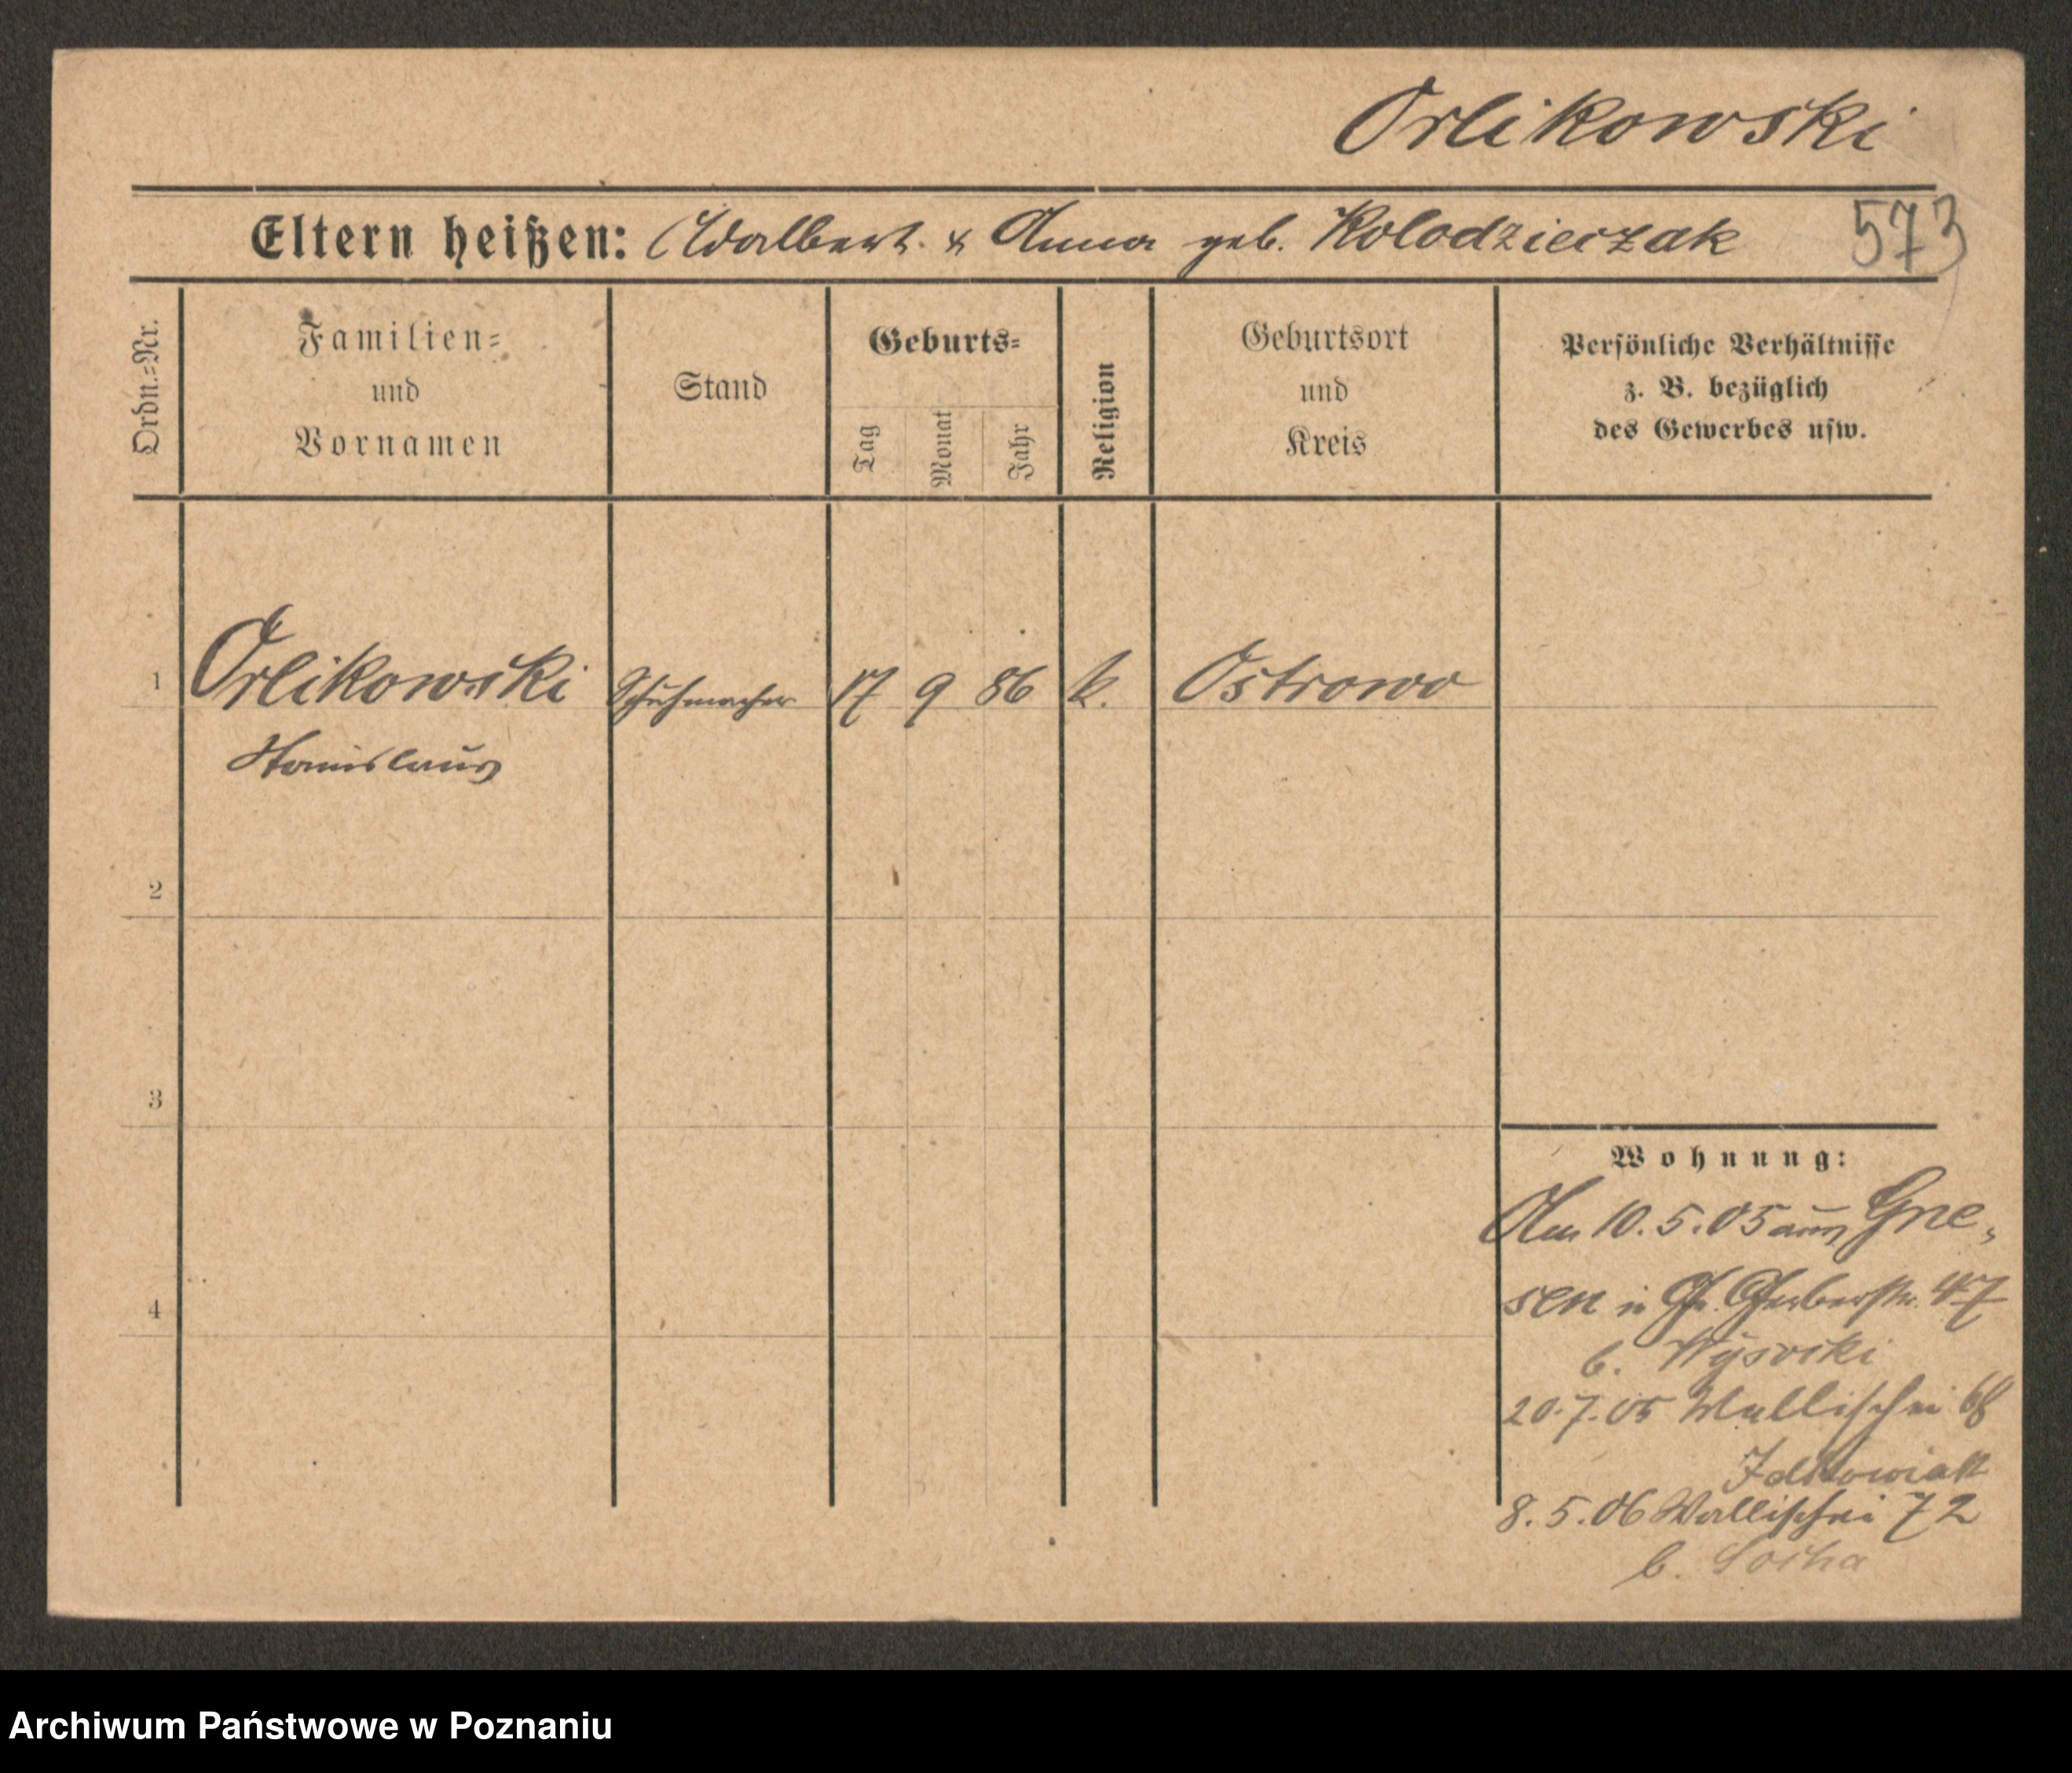 Orlikowski
Eltern heißen: Adalbert & Anna geb. Kolodzieczak 573
Ordn.=Nr.
Familien=
und
Vornamen
Stand
Geburts=
Tag
Monat
Jahr
Religion
Geburtsort
und
Kreis
Persönliche Verhältnisse
z. B. bezüglich
des Gewerbes usw.
1 Orlikowski Schuhmacher 17 9 86 k. Ostrowo
Stanislaus
2
3
4
Wohnung:
Am 10.5.05 aus Gne-
sen in Gr. Gerberstr. 47
b. Wysocki
20.7.05 Wallischei 68
8.5.06 Wallischei 72
b. Socha
Archiwum Państwowe w Poznaniu